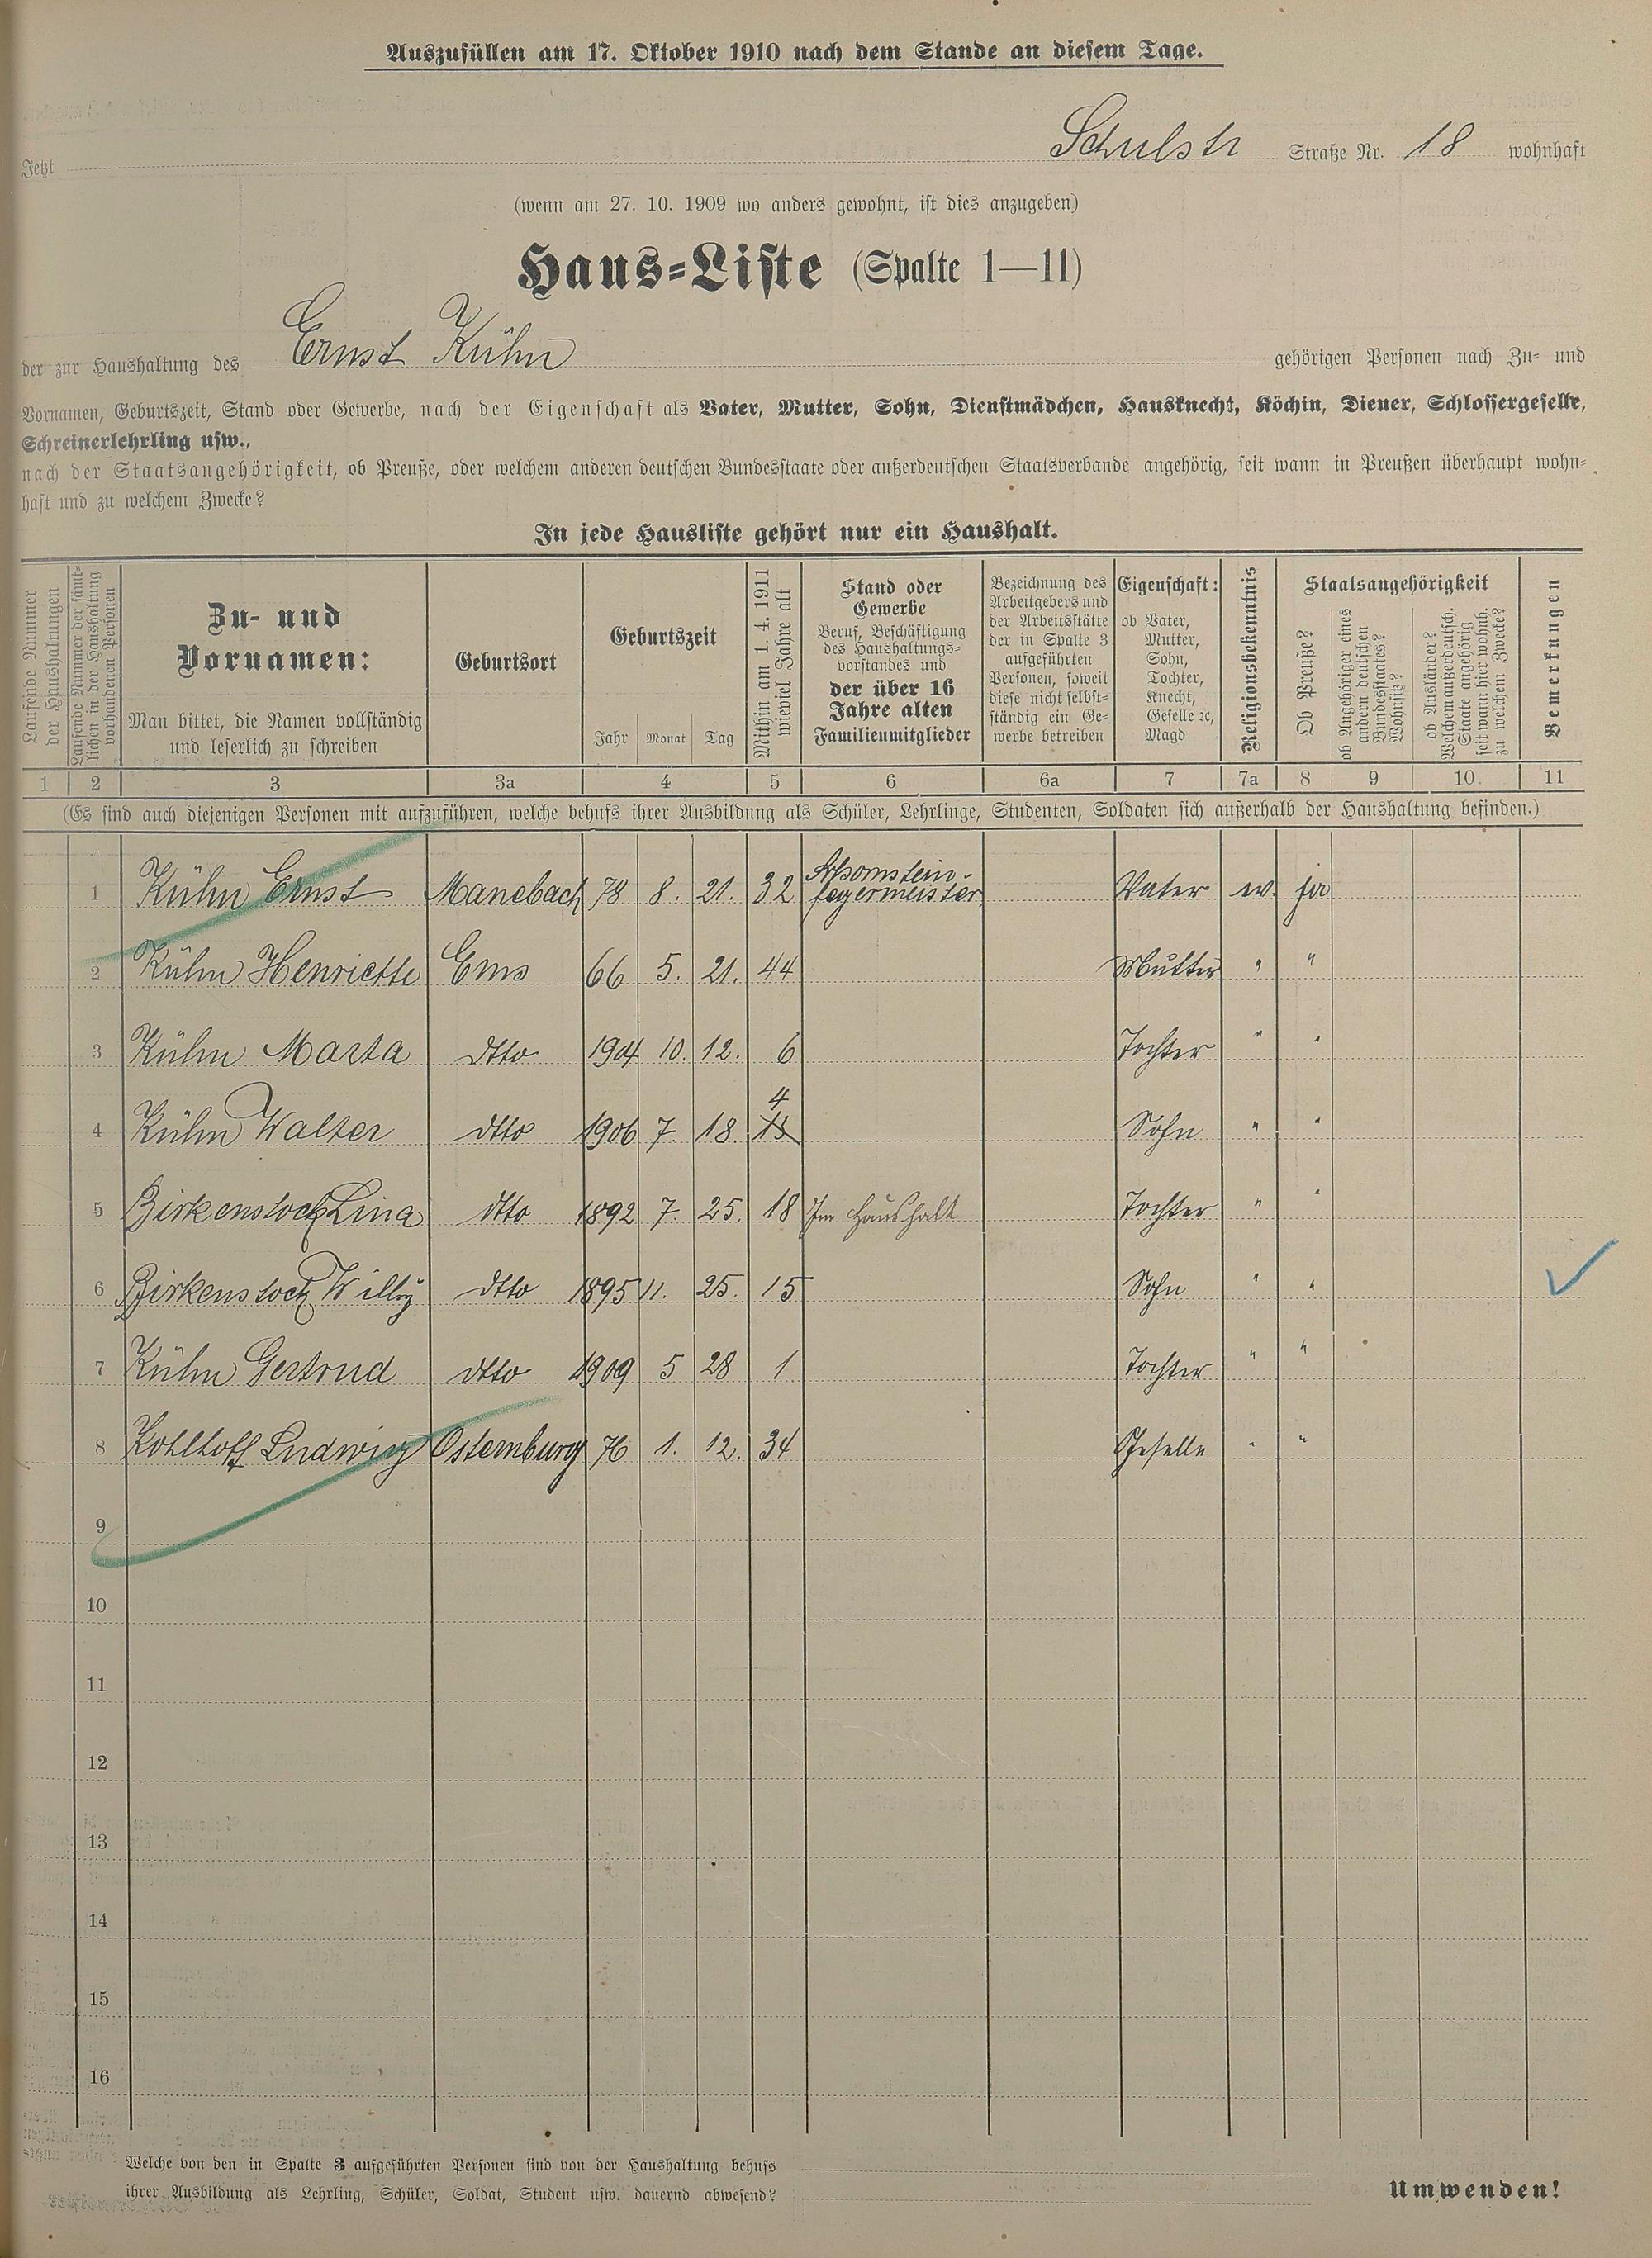 Auszufüllen am 17. Oktober 1910 nach dem Stande an diesem Tage.
Jetzt Schulstr Straße Nr. 18 wohnhaft
(wenn am 27. 10. 1909 wo anders gewohnt, ist dies anzugeben)
Haus-Liste (Spalte 1—11)
der zur Haushaltung des Ernst Kühn gehörigen Personen nach Zu- und
Vornamen, Geburtszeit, Stand oder Gewerbe, nach der Eigenschaft als Vater, Mutter, Sohn, Dienstmädchen, Hausknecht, Köchin, Diener, Schlossergeselle,
Schreinerlehrling usw.,
nach der Staatsangehörigkeit, ob Preuße, oder welchem anderen deutschen Bundesstaate oder außerdeutschen Staatsverbande angehörig, seit wann in Preußen überhaupt wohn-
haft und zu welchem Zwecke?
In jede Hausliste gehört nur ein Haushalt.
Laufende Nummer
der Haushaltungen
Laufende Nummer der sämt-
lichen in der Haushaltung
vorhandenen Personen
Zu- und
Vornamen:
Man bittet, die Namen vollständig
und leserlich zu schreiben
Geburtsort
Geburtszeit
Jahr Monat Tag
Mithin am 1. 4. 1911
wieviel Jahre alt
Stand oder
Gewerbe
Beruf, Beschäftigung
des Haushaltungs-
vorstandes und
der über 16
Jahre alten
Familienmitglieder
Bezeichnung des
Arbeitgebers und
der Arbeitsstätte
der in Spalte 3
aufgeführten
Personen, soweit
diese nicht selbst-
ständig ein Ge-
werbe betreiben
Eigenschaft:
ob Vater,
Mutter,
Sohn,
Tochter,
Knecht,
Geselle ꝛc,
Magd
Religionsbekenntnis
Staatsangehörigkeit
Ob Preuße?
ob Angehöriger eines
andern deutschen
Bundesstaates?
Wohnsitz?
ob Ausländer?
Welchem außerdeutsch.
Staate angehörig
seit wann hier wohnh.
zu welchem Zwecke?
Bemerkungen
1 2 3 3a 4 5 6 6a 7 7a 8 9 10. 11
(Es sind auch diejenigen Personen mit aufzuführen, welche behufs ihrer Ausbildung als Schüler, Lehrlinge, Studenten, Soldaten sich außerhalb der Haushaltung befinden.)
1 Kühn Ernst Manebach 78 8. 21. 32 Schornstein-
fegermeister Vater ev. ja
2 Kühn Henriette Ems 66 5. 21. 44 Mutter " "
3 Kühn Marta dtto 1904 10. 12. 6 Tochter " "
4 Kühn Walter dtto 1906 7. 18. 4 Sohn " "
5 Birkenstock Lina dtto 1892 7. 25. 18 Im Haushalt Tochter " "
6 Birkenstock Willy dtto 1895 11. 25. 15 Sohn " "
7 Kühn Gertrud dtto 1909 5 28 1 Tochter " "
8 Kohlhoff Ludwig Osternburg 76 1. 12. 34 Geselle " "
9
10
11
12
13
14
15
16
Welche von den in Spalte 3 aufgeführten Personen sind von der Haushaltung behufs
ihrer Ausbildung als Lehrling, Schüler, Soldat, Student usw. dauernd abwesend?
Umwenden!